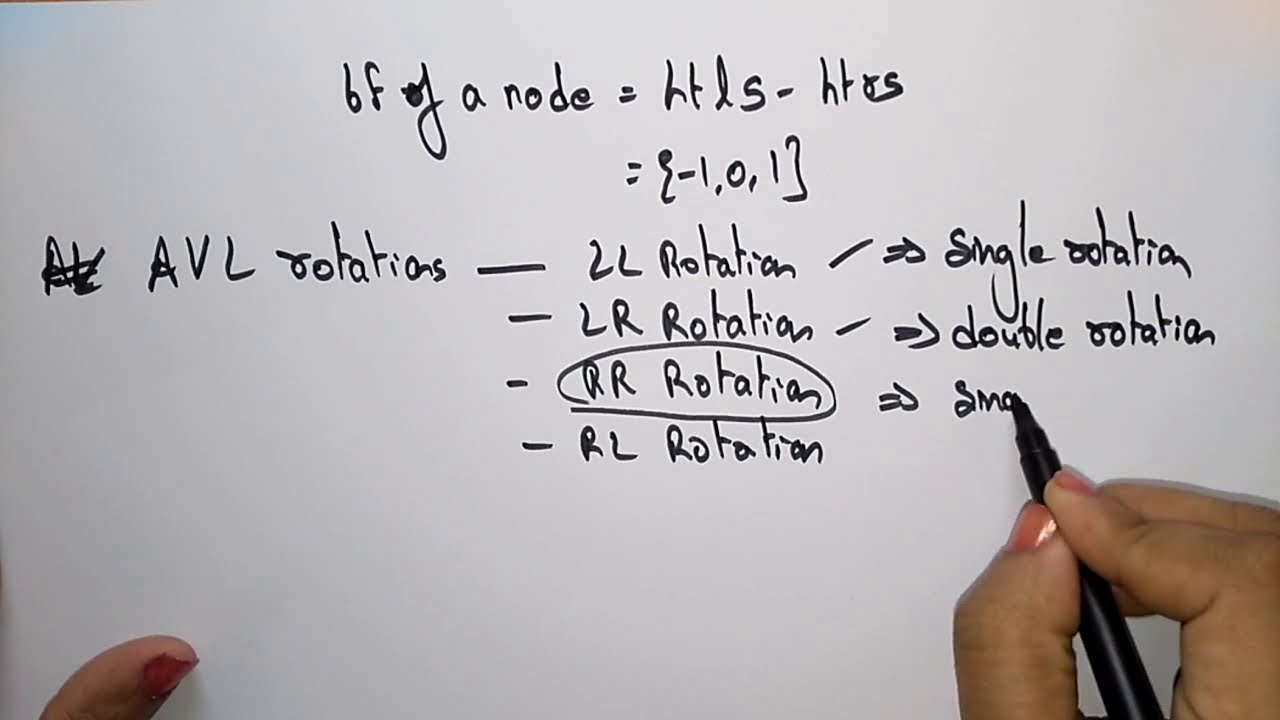 bf of a node = htls - htrs
= {-1, 0, 1}
AVL rotations — LL Rotation ⇒ single rotation
- LR Rotation - ⇒ double rotation
- RR Rotation ⇒ sing
- RL Rotation